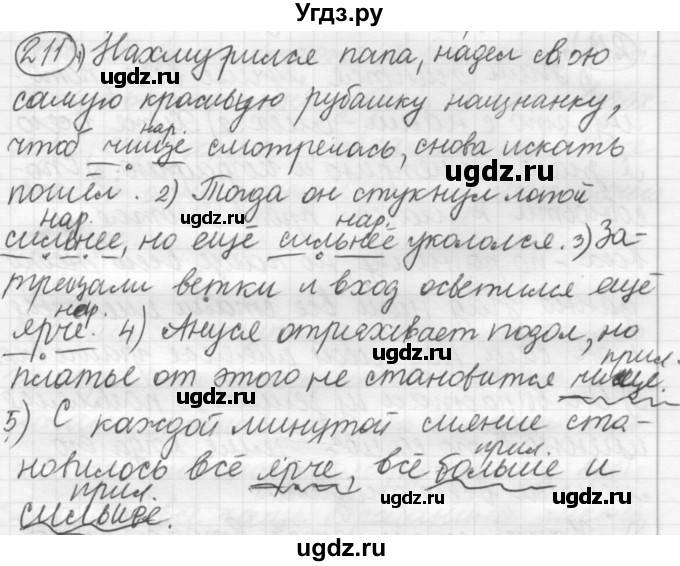 Угдз.ру
211 1) Нахмурился папа, надел свою
самую красивую рубашку нащнанку,
нар.
чтоб чище смотрелась, снова искать
пошёл. 2) Тогда он стукнул лапой
нар. нар.
сильнее, но ещё сильнее укололся. 3) За-
трещали ветки и вход осветился ещё
нар.
ярче. 4) Ануся отряхивает подол, но
прил.
платье от этого не становится чище.
5) С каждой минутой сияние ста-
прил.
новилось всё ярче, всё больше и
прил.
сильнее.
ugdz.ru
ugdz.ru
ugdz.ru
ugdz.ru
ugdz.ru
ugdz.ru
ugdz.ru
ugdz.ru
ugdz.ru
ugdz.ru
ugdz.ru